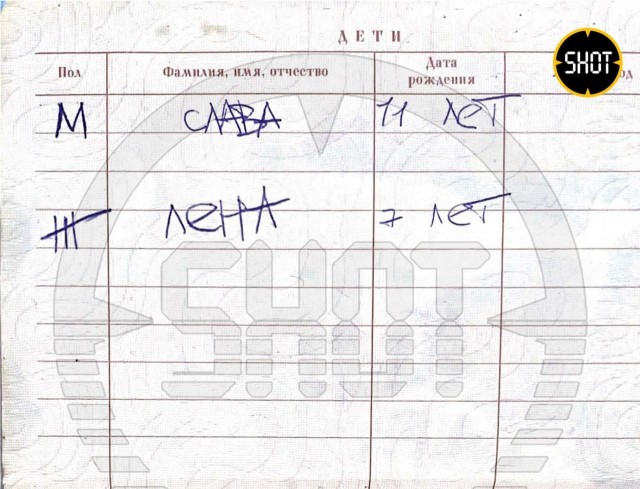 ДЕТИ
Пол Фамилия, имя, отчество Дата рождения од
М СЛАВА 11 ЛЕТ
Ж ЛЕНА 7 ЛЕТ
SHOT
SHOT